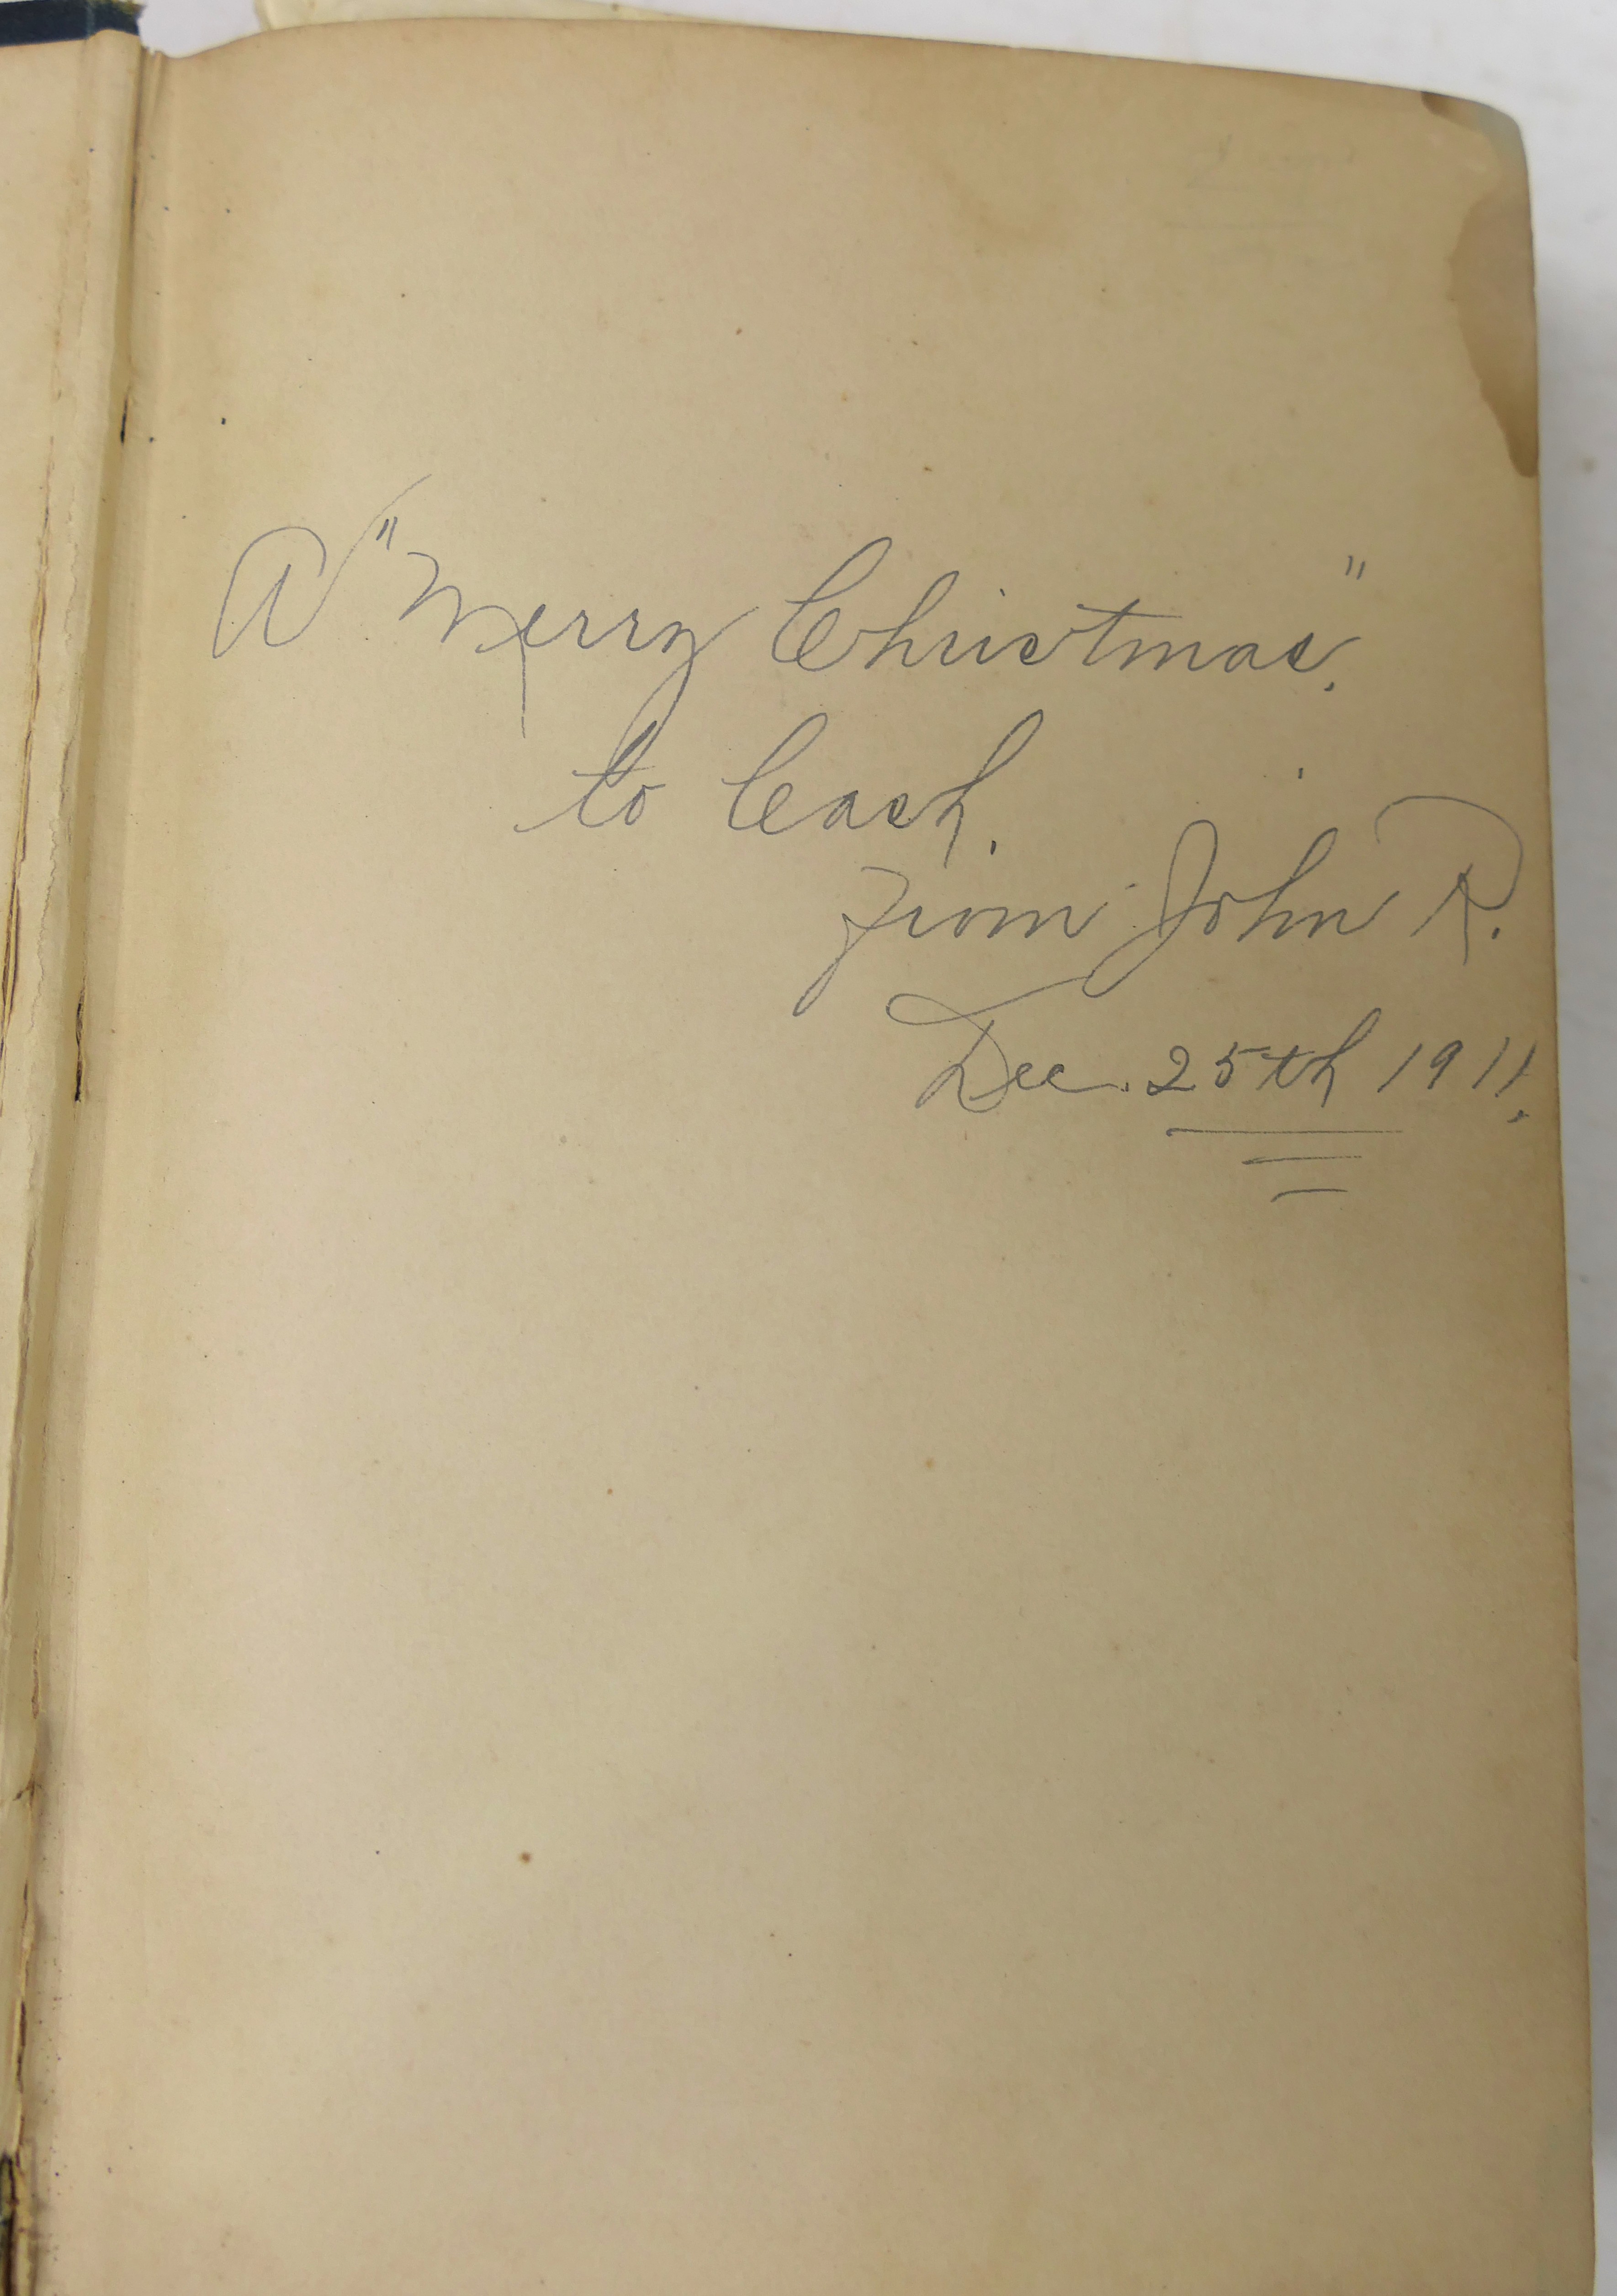 A "Merry Christmas."
to Cash.
From John R.
Dec. 25th 1911.